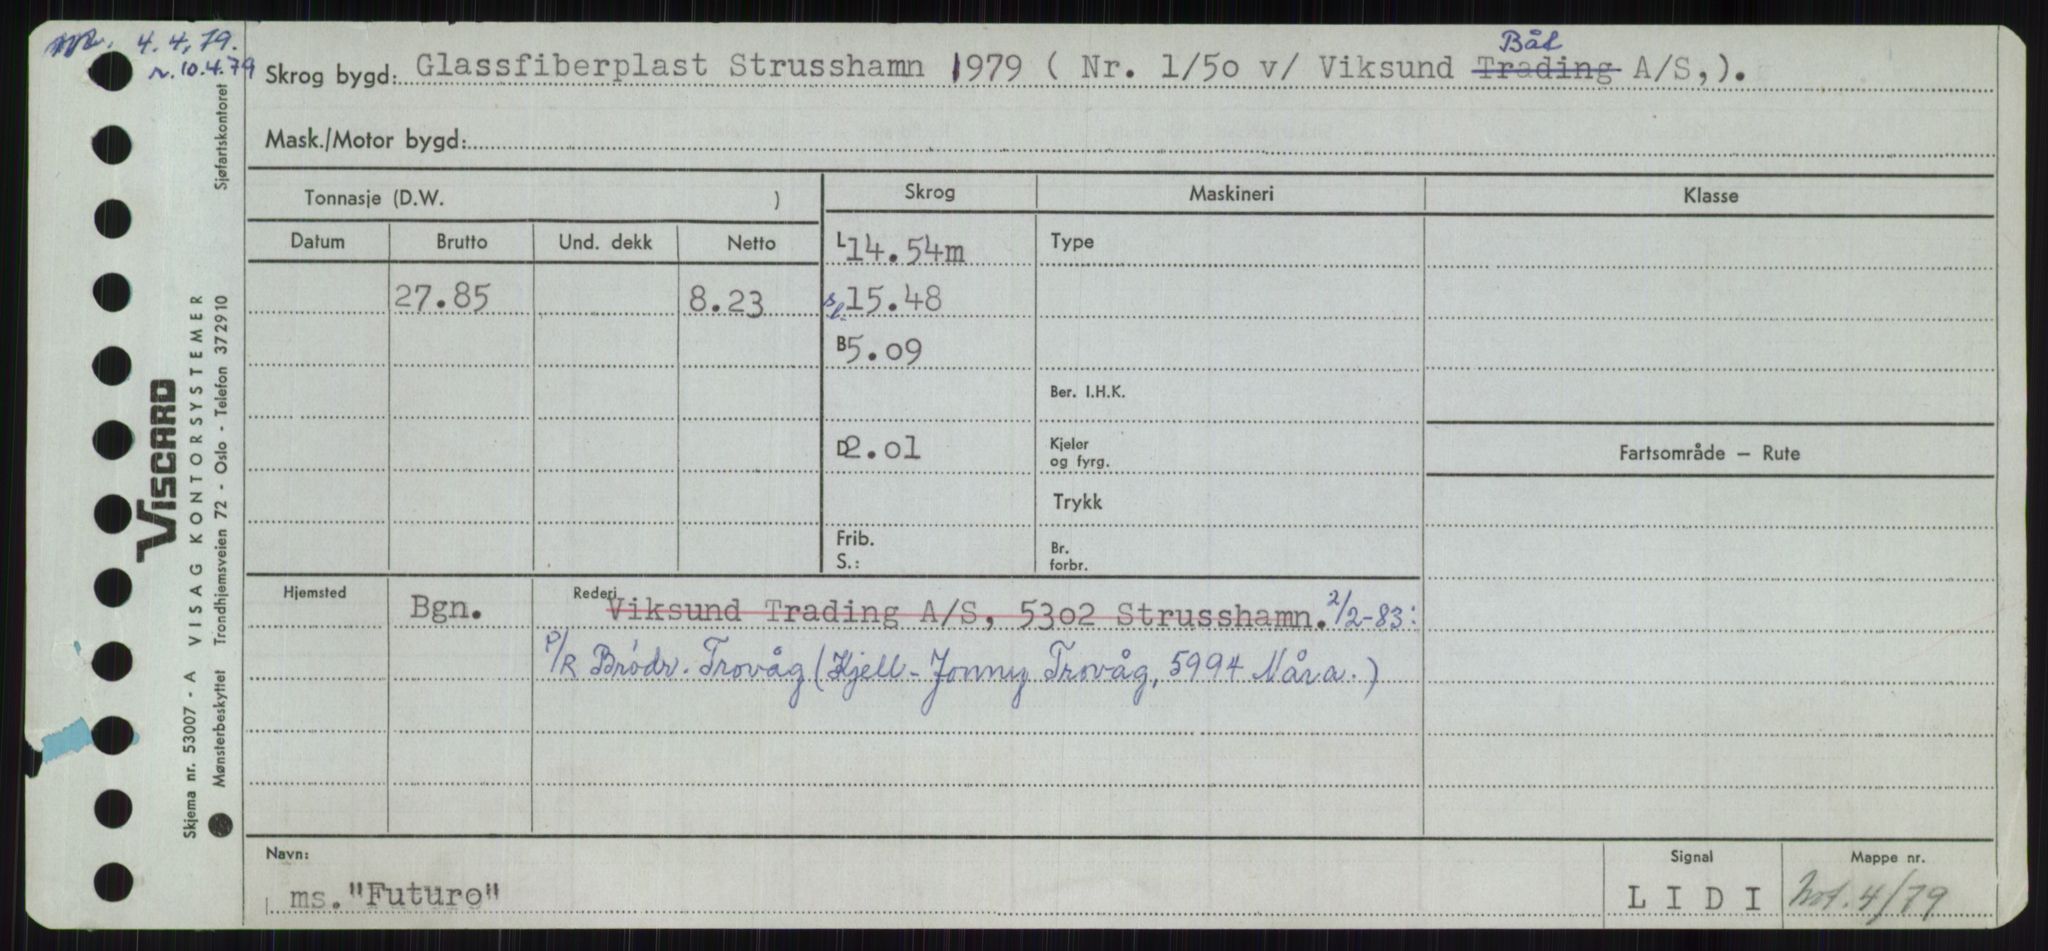 4.4.79.
r. 10.4.79
Båt
Skrog bygd: Glassfiberplast Strusshamn 1979 ( Nr. 1/50 v/ Viksund Trading A/S,).
Mask./Motor bygd:
Tonnasje (D.W. )
Skrog Maskineri Klasse
Datum Brutto Und. dekk Netto
L 14.54m Type
27.85 8.23 sl. 15.48
B 5.09
Ber. I.H.K.
D 2.01 Kjeler og fyrg.
Fartsområde — Rute
Trykk
Frib.
S.: Br. forbr.
Hjemsted Bgn. Rederi Viksund Trading A/S, 5302 Strusshamn. 2/2-83:
P/R Brödr. Trovåg (Kjell-Jonny Trovåg, 5994 Nåra.)
Navn: Signal Mappe nr.
ms. "Futuro" L I D I Not. 4/79
VISCARD
Skjema nr. 53007 - A VISAG KONTORSYSTEMER
Mønsterbeskyttet Trondhjemsveien 72 - Oslo - Telefon 372910 Sjøfartskontoret